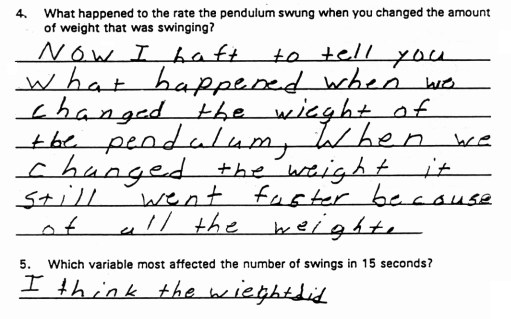 4. What happened to the rate the pendulum swung when you changed the amount
of weight that was swinging?
Now I haft to tell you
what happened when we
changed the wieght of
the pendulum, When we
changed the weight it
still went faster because
of all the weight.
5. Which variable most affected the number of swings in 15 seconds?
I think the wieght did